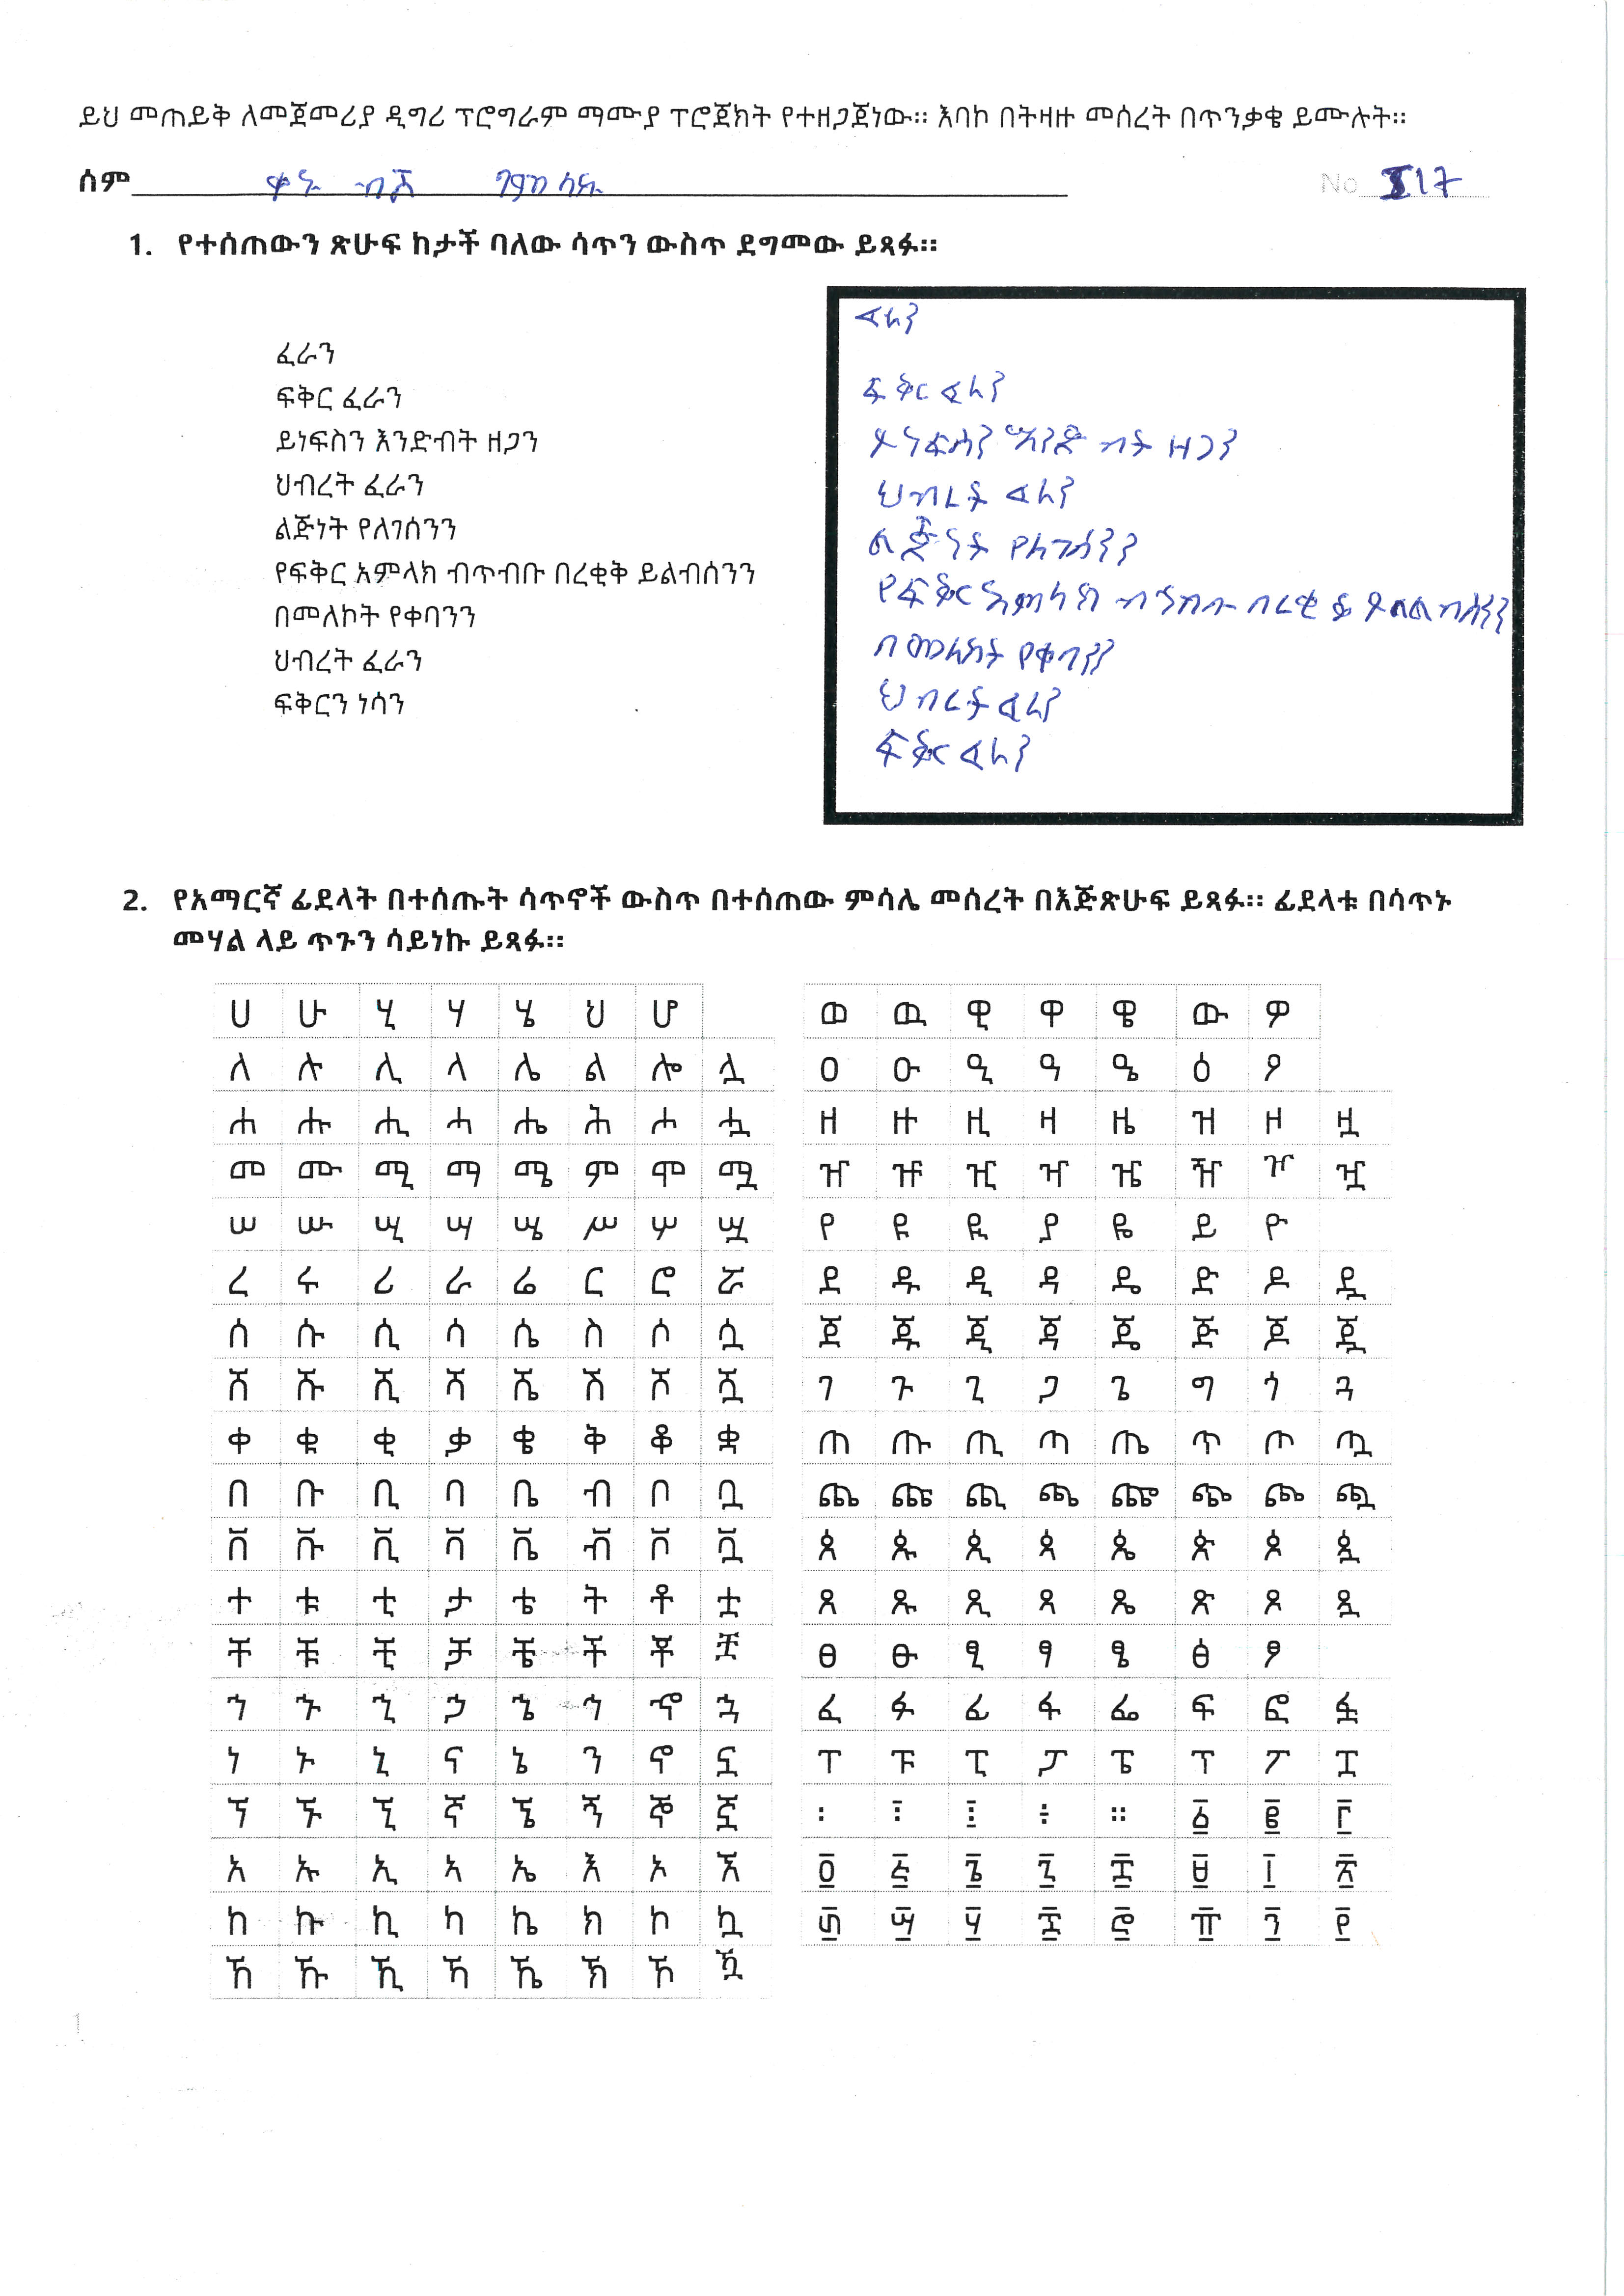 ይህ መጠይቅ ለመጀመሪያ ዲግሪ ፕሮግራም ማሙያ ፕሮጀክት የተዘጋጀነው። እባኮ በትዛዙ መሰረት በጥንቃቄ ይሙሉት።
ስም No 17
1. የተሰጠውን ጽሁፍ ከታች ባለው ሳጥን ውስጥ ደግመው ይጻፉ።
ፈራን
ፍቅር ፈራን
ይነፍስን እንድብት ዘጋን
ህብረት ፈራን
ልጅነት የለገሰንን
የፍቅር አምላክ ብጥብቡ በረቂቅ ይልብሰንን
በመለኮት የቀባንን
ህብረት ፈራን
ፍቅርን ነሳን
ፈራን
ፍቅር ፈራን
ይነፍሳን እንድ ብት ዘጋን
ህብረት ፈራን
ልጅነት የለገሰንን
የፍቅር አምላክ በረቂቅ
በመለኮት የቀባንን
ህብረት ፈራን
ፍቅር ፈራን
2. የአማርኛ ፊደላት በተሰጡት ሳጥኖች ውስጥ በተሰጠው ምሳሌ መሰረት በእጅጽሁፍ ይጻፉ። ፊደላቱ በሳጥኑ
መሃል ላይ ጥጉን ሳይነኩ ይጻፉ።
ሀ ሁ ሂ ሃ ሄ ህ ሆ
ለ ሉ ሊ ላ ሌ ል ሎ ሏ
ሐ ሑ ሒ ሓ ሔ ሕ ሖ ሗ
መ ሙ ሚ ማ ሜ ም ሞ ሟ
ሠ ሡ ሢ ሣ ሤ ሥ ሦ ሧ
ረ ሩ ሪ ራ ሬ ር ሮ ሯ
ሰ ሱ ሲ ሳ ሴ ስ ሶ ሷ
ሸ ሹ ሺ ሻ ሼ ሽ ሾ ሿ
ቀ ቁ ቂ ቃ ቄ ቅ ቆ ቋ
በ ቡ ቢ ባ ቤ ብ ቦ ቧ
ቨ ቩ ቪ ቫ ቬ ቭ ቮ ቯ
ተ ቱ ቲ ታ ቴ ት ቶ ቷ
ቸ ቹ ቺ ቻ ቼ ች ቾ ቿ
ኀ ኁ ኂ ኃ ኄ ኅ ኆ ኋ
ነ ኑ ኒ ና ኔ ን ኖ ኗ
ኘ ኙ ኚ ኛ ኜ ኝ ኞ ኟ
አ ኡ ኢ ኣ ኤ እ ኦ ኧ
ከ ኩ ኪ ካ ኬ ክ ኮ ኳ
ኸ ኹ ኺ ኻ ኼ ኽ ኾ ዃ
ወ ዉ ዊ ዋ ዌ ው ዎ
ዐ ዑ ዒ ዓ ዔ ዕ ዖ
ዘ ዙ ዚ ዛ ዜ ዝ ዞ ዟ
ዠ ዡ ዢ ዣ ዤ ዥ ዦ ዧ
የ ዩ ዪ ያ ዬ ይ ዮ
ደ ዱ ዲ ዳ ዴ ድ ዶ ዷ
ጀ ጁ ጂ ጃ ጄ ጅ ጆ ጇ
ገ ጉ ጊ ጋ ጌ ግ ጎ ጓ
ጠ ጡ ጢ ጣ ጤ ጥ ጦ ጧ
ጨ ጩ ጪ ጫ ጬ ጭ ጮ ጯ
ጰ ጱ ጲ ጳ ጴ ጵ ጶ ጷ
ጸ ጹ ጺ ጻ ጼ ጽ ጾ ጿ
ፀ ፁ ፂ ፃ ፄ ፅ ፆ
ፈ ፉ ፊ ፋ ፌ ፍ ፎ ፏ
ፐ ፑ ፒ ፓ ፔ ፕ ፖ ፗ
፡ ፧ ፤ ። ፩ ፪ ፫
፬ ፭ ፮ ፯ ፰ ፱ ፲ ፳
፴ ፵ ፶ ፷ ፸ ፹ ፺ ፻
1